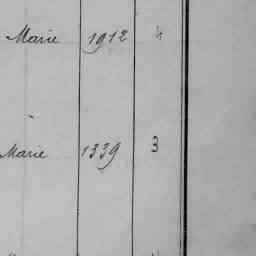 Marie 1912 4
Marie 1339 3